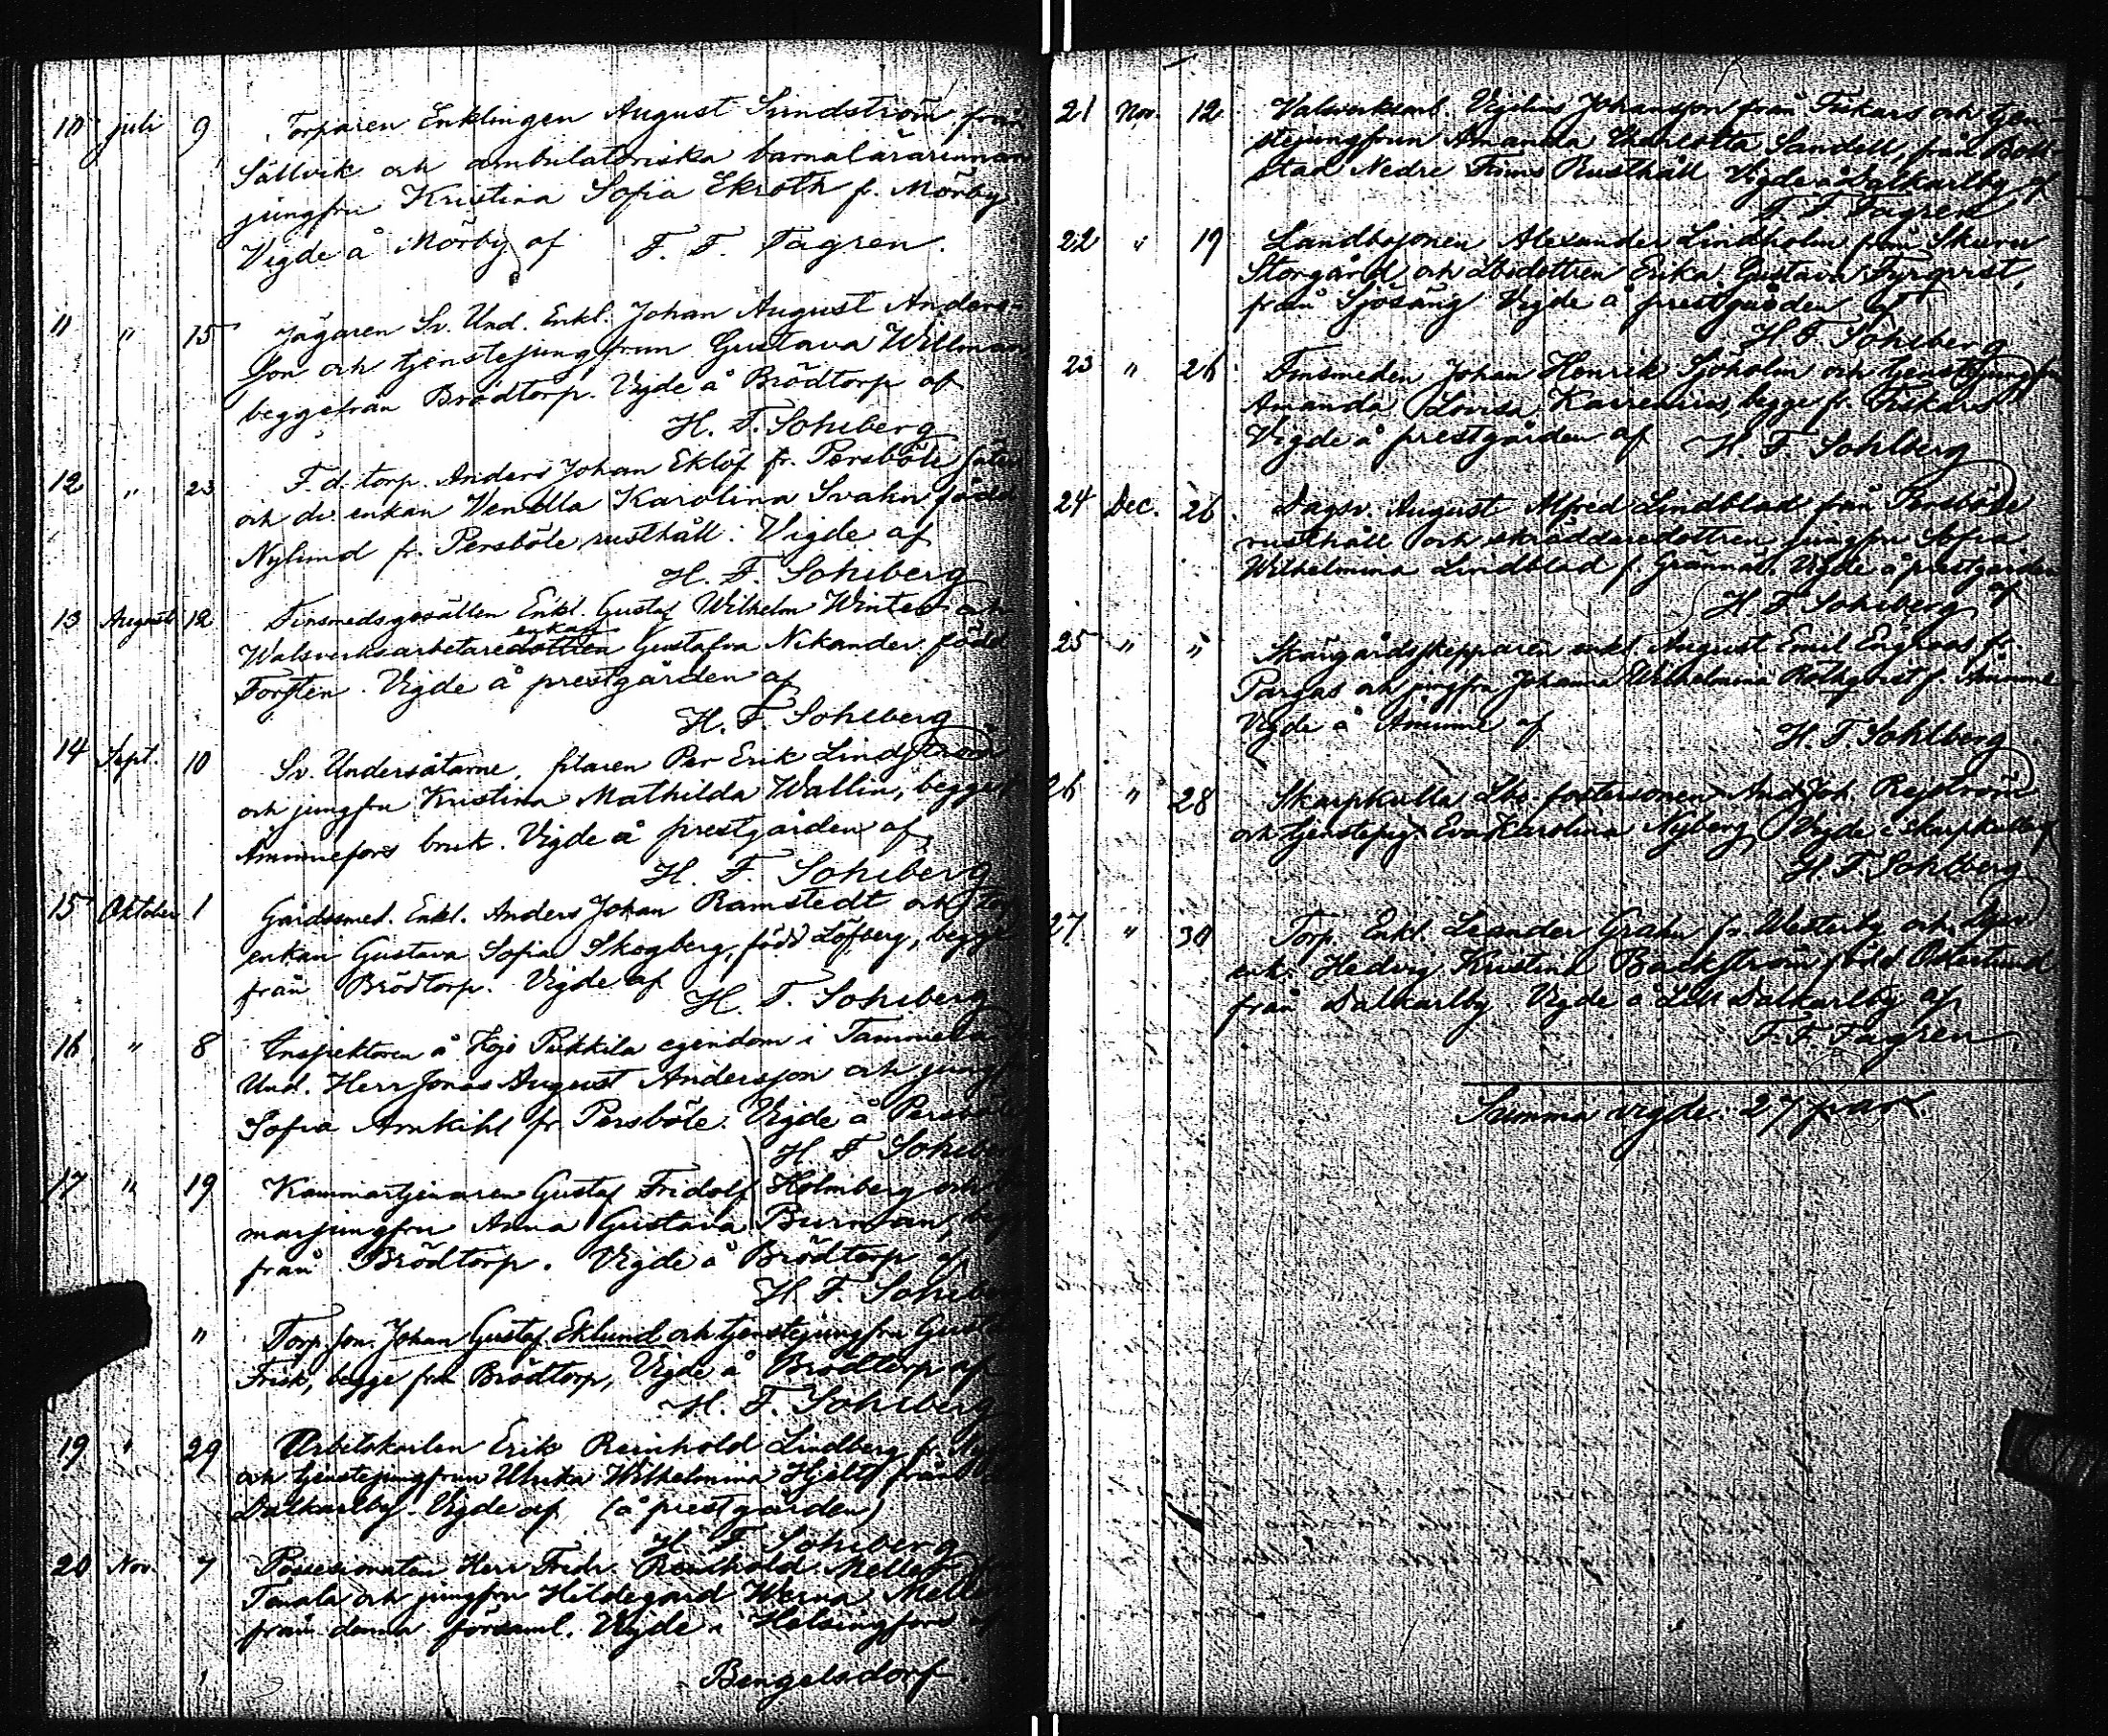 10 juli 9 Torparen Enklingen August Sundström från
Sällvik och ambulatoriska barnalärarinnan
jungfru Kristina Sofia Ekroth f. Mörby
Vigde å Mörby af F. F. Fagren.
11 " 15 Jägaren Sv. Und. Enkl. Johan August Anders-
son och tjenstejungfrun Gustava Willman,
begge från Brödtorp. Vigde å Brödtorp af
H. F. Sohlberg
12 " 23 F. d. torp. Anders Johan Eklöf fr. Persböle
och dv. enkan Vendla Karolina Svahn född
Nylund fr. Persböle rusthåll. Vigde af
H. F. Sohlberg
13 Augusti 12 Finsmedsgesällen Enkl. Gustaf Wilhelm Winter och
enkan
Walsverksarbetaredottren Gustafva Nikander född
Forsten. Vigde å prestgården af
H. F. Sohlberg
14 Sept. 10 Sv. Undersåtarne, filaren Per Erik Lindström
och jungfru Kristina Mathilda Wallin, begge f
Åminnefors bruk. Vigde å prestgården af
H. F. Sohlberg
15 Oktober 1 Gårdssmed. Enkl. Anders Johan Ramstedt och
enkan Gustava Sofia Skogberg, född Löfberg, begge
från Brödtorp. Vigde af
H. F. Sohlberg
16 " 8 Inspektoren å Kojo Pikkila egendom i Tammela
Und. Herr Jonas August Andersson och jungf
Sofia Arnkihl fr Persböle. Vigde å Persböle
H. F. Sohlberg
17 " 19 Kammartjenaren Gustaf Fridolf Holmberg och
marjungfru Anna Gustava Burman,
från Brödtorp. Vigde å Brödtorp af
H. F. Sohlberg
" Torp. son. Johan Gustaf Eklund och tjenstejungfru
Frisk, begge från Brödtorp, Vigde å Brödtorp af
H. F. Sohlberg
19 " 29 Arbetskarlen Erik Reinhold Lindberg fr.
och tjenstejungfrun Ulrika Wilhelmina Hjelt från
Dalkarlby. Vigde af (å prestgården)
H. F. Sohlberg
20 Nov. 7 Possessionaten Herr Fredr. Reinhold
Tenala och jungfru Hildegard Werna
från denna församl. Vigde i Helsingfors af
Bengelsdorf.
21 Nov. 12 Valsverksarb. Johansson från Fiskars och tjen-
stejungfrun Amanda Charlotta Sandell, från
stad Nedre Rusthåll Vigde å Dalkarlby af
F. F. Fagren
22 " 19 Landbosonen Alexander Lindholm från Skuru
Storgård och Lbodottren Erika Gustava Fyrqvist,
från Sjösäng Vigde å prestgården af
H. F. Sohlberg
23 " 26 Finsmeden Johan Henrik Sjöholm och tjenstejungfru
Amanda Lovisa begge fr. Fiskars
Vigde å prestgården af H. F. Sohlberg
24 Dec. 26 Dagsv. August Alfred Lindblad från Persböle
rusthåll och skräddaredottren jungfru Sofia
Wilhelmina Lindblad f. Grännäs. Vigde å prestgården
af
H. F. Sohlberg
25 " " Skärgårdsskepparen enkl August Emil Engroos fr.
Pargas och jungfru Johanna Wilhelmina Rothqvist f Åminne
Vigde å Åminne af
H. F. Sohlberg
26 " 28 Skarpkulla Lbo. fostersonen And. Joh. Rejström
och tjenstepig. Eva Karolina Nyberg Vigde å Skarpkulla
H. F. Sohlberg
27 " 30 Torp. Enkl. Leander Grahn fr. Westerby och
enk. Hedvig Kristina Backström född Österlund
från Dalkarlby. Vigde å Lill Dalkarlby af
F. F. Fagren
Summa vigde: 27 par.